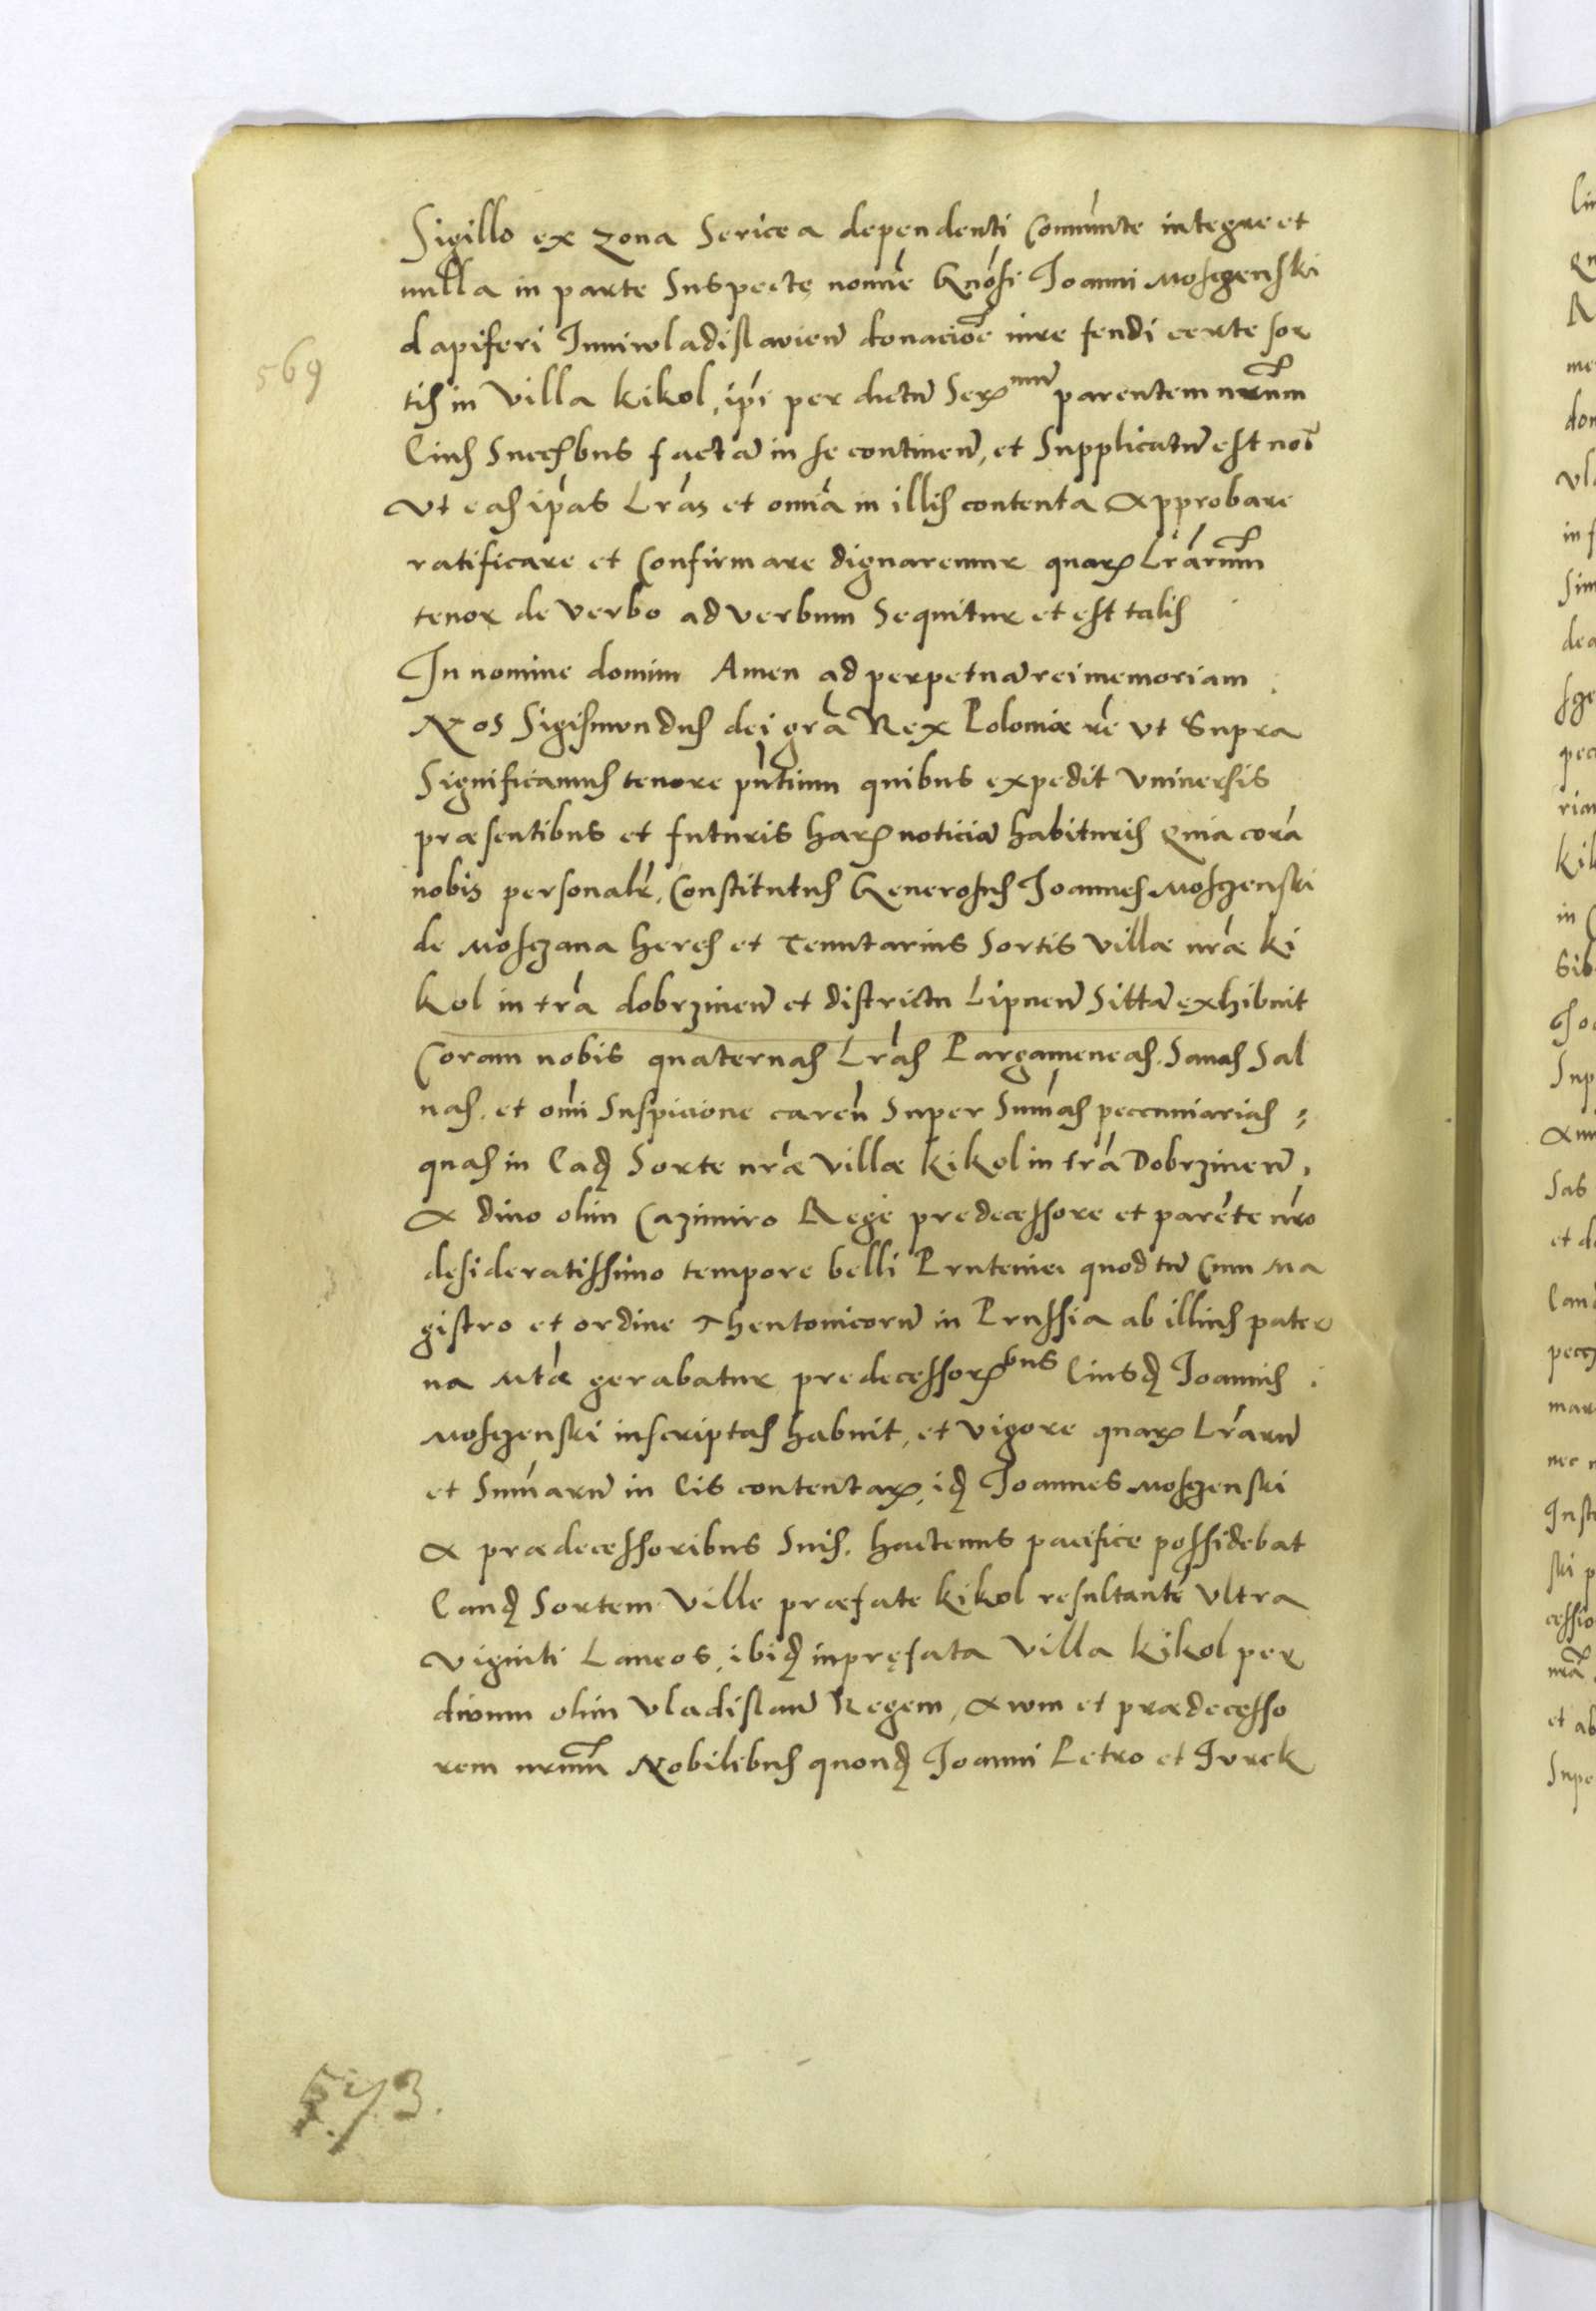 Sigillo ex zona Sericea dependenti Co͞munite integre et
nulla in parte Suspectę nomi͞e Gn͞osi Joanni Mosczenski
dapiferi Juniwladislavien͞ donacio͞e iure feudi certe sor
569
tis in villa Kikol, ip͞i per dictu͞ Serꝝᵐᵘ͞ parentem nr͞um
Eius Succ͞sbus facta͞ in se continen͞, et Supplicatu͞ est nob͞
Ut eas ip͞as Lr͞as et om͞ia in illis contenta Approbare
ratificare et Confirmare dignaremur quarꝝ Lr͞arum
tenor de verbo ad verbum Sequitur et est talis
In nomine domini Amen ad perpetua͞ rei memoriam
Nos Sigismundus dei gr͞a Rex Poloniæ rc͞ Ut Supra
Significamus tenore pn͞tium quibus expedit Universis
præsentibus et futuris harꝝ noticia͞ habituris Quia cora͞
nobis personalr͞, Constitutus Generosus Joannes Mosczenski
de Mosczana heres et Tenutarius Sortis Villæ nr͞æ Ki
kol in tr͞a dobrzinen͞ et districtu Lipnen͞ Sitta͞ exhibuit
Coram nobis quaternas Lr͞as Pargameneas. Sanas Sal
uas, et om͞i Suspicione caren͞ Super Sum͞as peccuniarias,
quas in Eadꝫ Sorte nr͞æ Villæ Kikol in tr͞a Dobrzinen͞,
A diuo olim Cazimiro Rege predecessore et pare͞te nr͞o
desideratissimo tempore belli Prutenici quod tu͞ Cum Ma
gistro et ordine Theutonicoru͞ in Prussia ab illius pater
na Mt͞æ gerabatur predecessorꝝᵇᵘˢ Eiusdꝫ Joannis
Mosczenski inscriptas habuit, et vigore quarꝝ Lr͞aru͞
et Sum͞aru͞ in Eis contentarꝝ, idꝫ Joannes Mosczenski
A prædecessoribus Suis, hactenus pacifice possidebat
Eandꝫ Sortem Ville præfate Kikol resultante͞ Ultra
Viginti Laneos, ibidꝫ in pręfata Villa Kikol per
divum olim Vladislau͞ Regem, Avum et prædecesso
rem nr͞um Nobilibus quondꝫ Joanni Petro et Jurek
573.